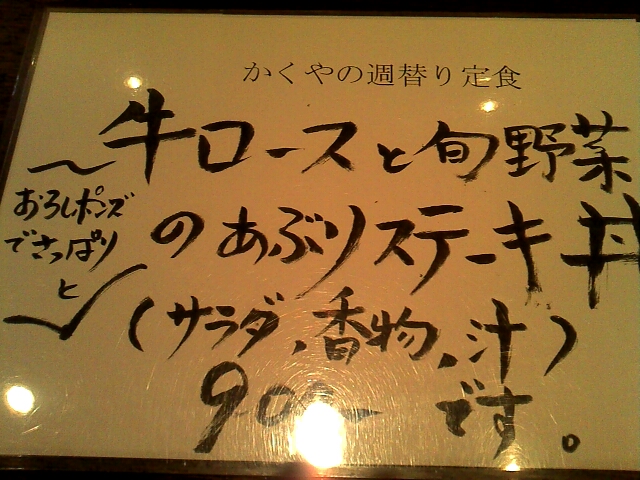 かくやの週替り定食
牛ロースと旬野菜
のあぶりステーキ丼
〜おろしポンズ
でさっぱり
と〜
(サラダ、香物、汁)
です。